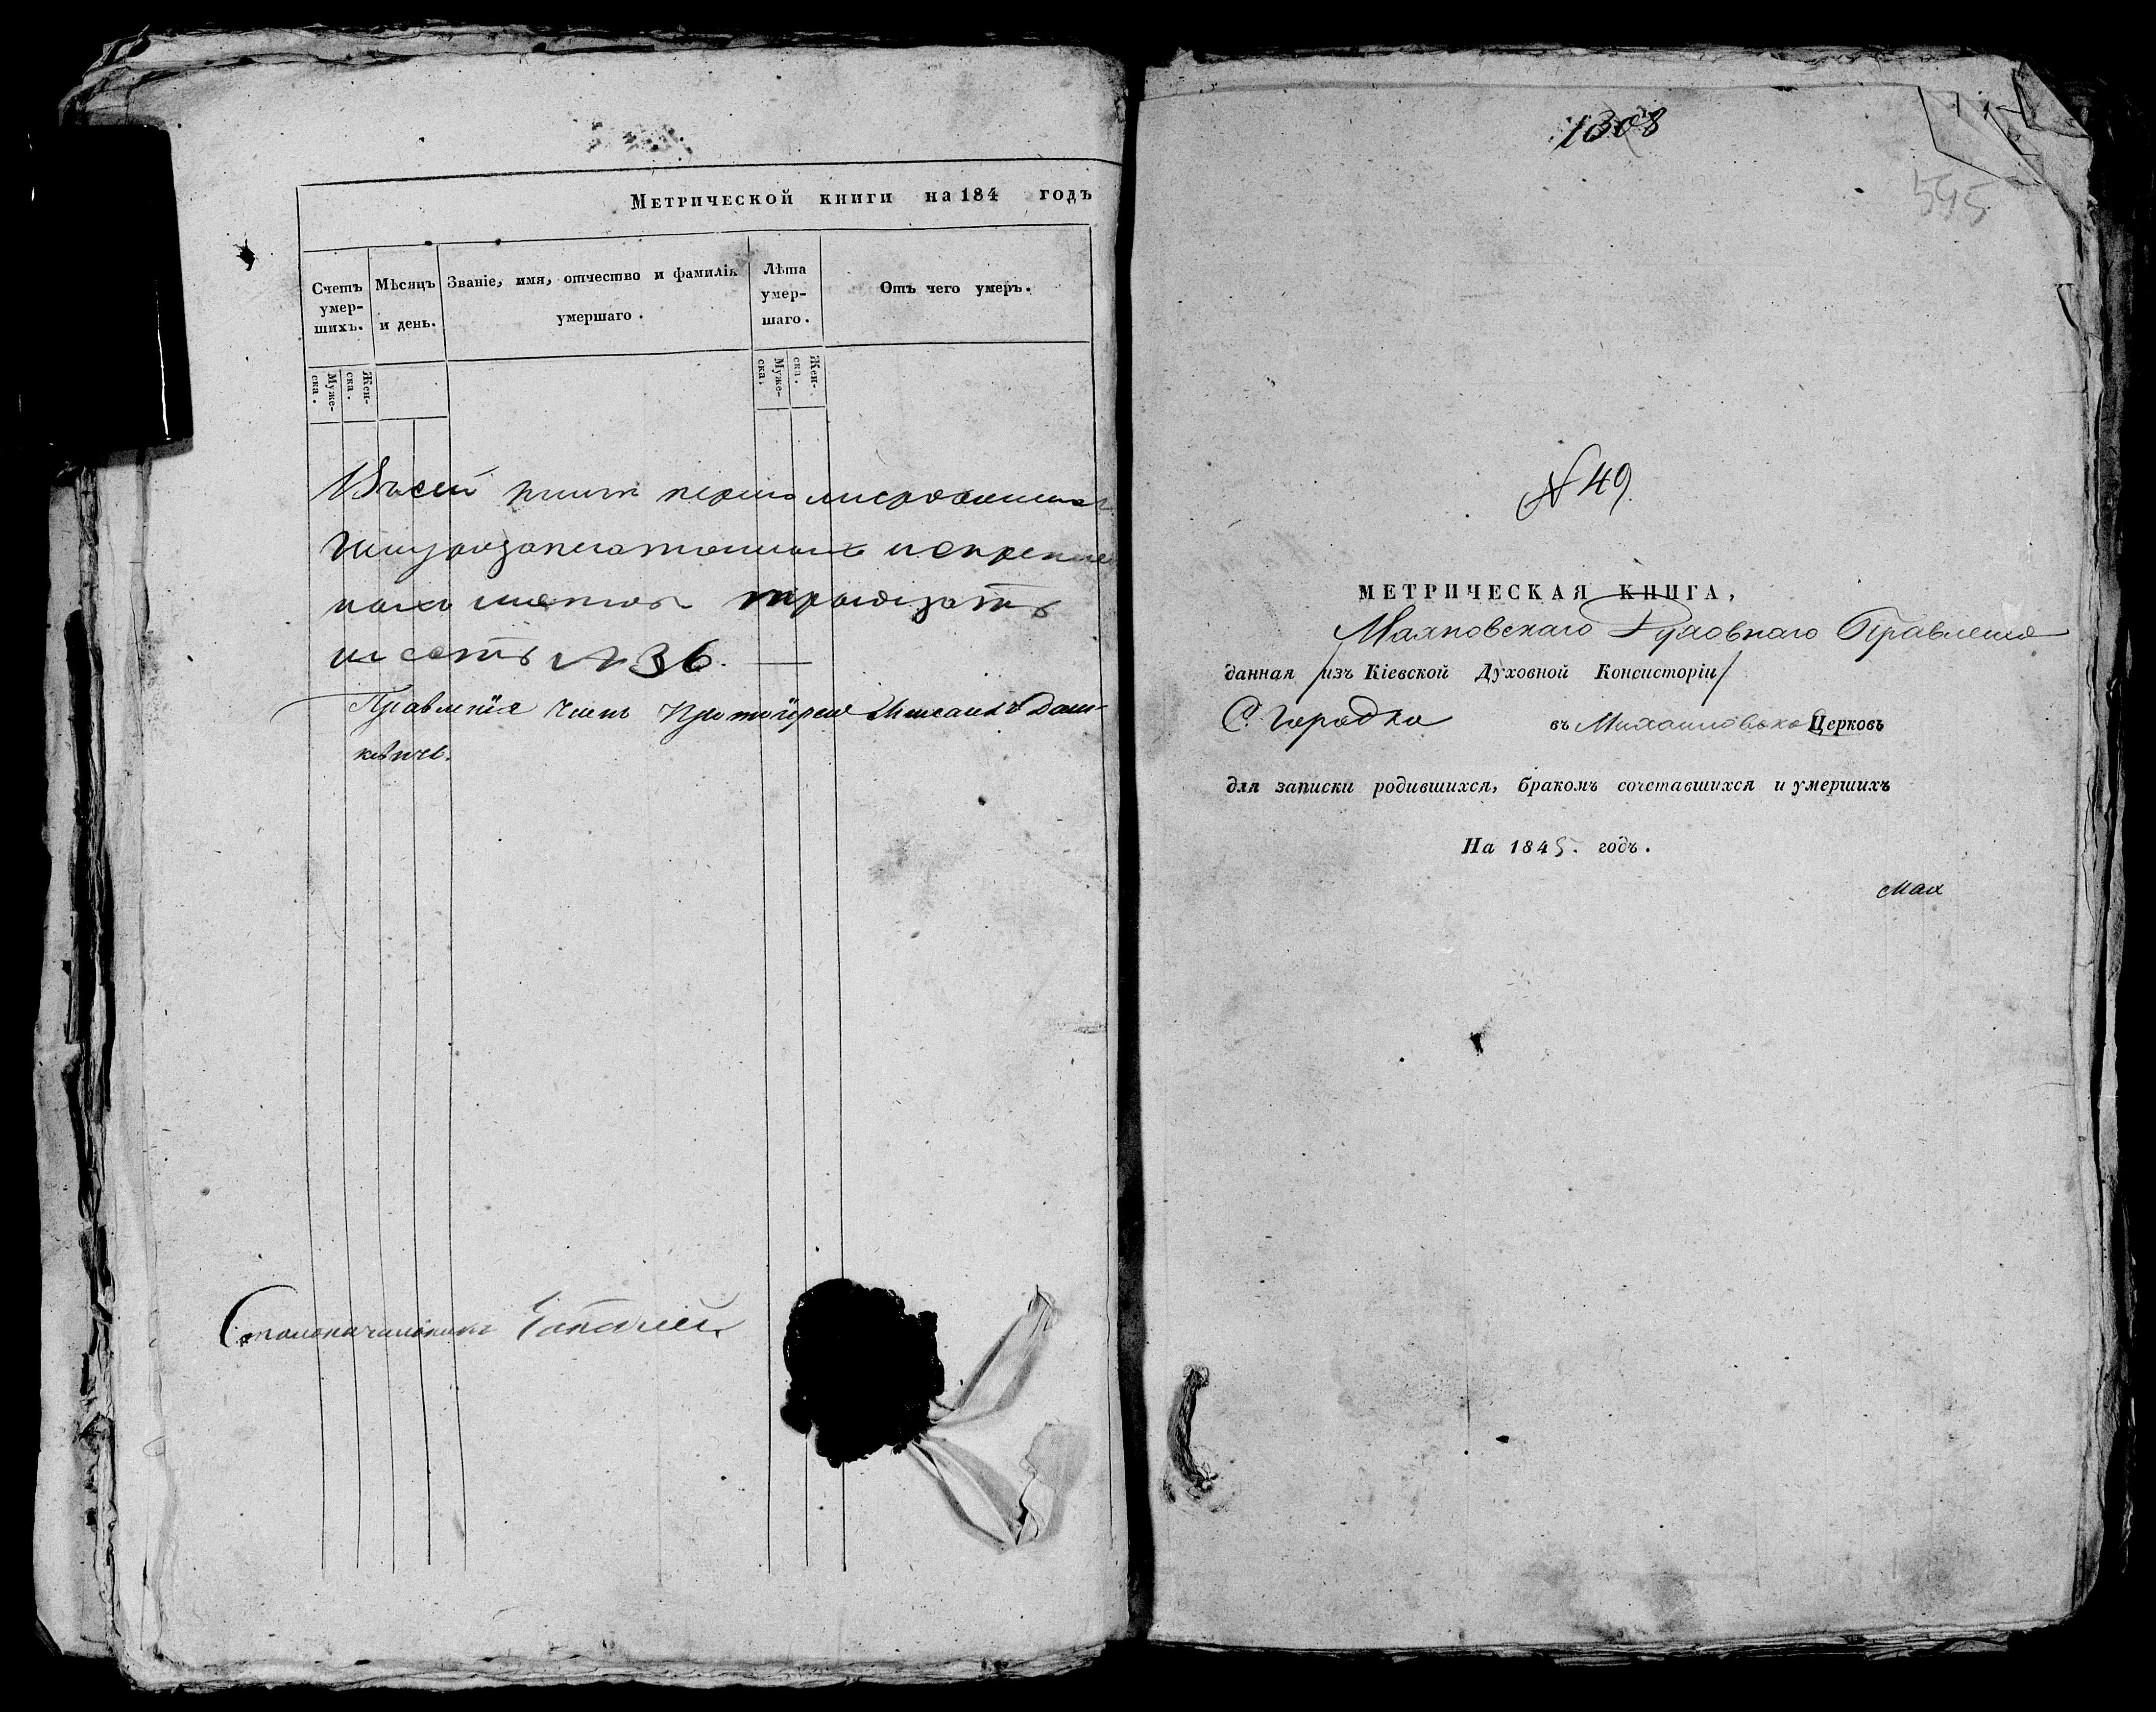 Метрической книги на 184 годъ
Счетъ умер-шихъ.
Мѣсяцъ и день.
Званіе, имя, отчество и фамилія умершаго.
Лѣта умер-шаго.
Отъ чего умеръ.
Муже-ска.
Жен-ска.
Муже-ска.
Жен-ска.
Въ сей книгѣ
шнурозапечатанныхъ и скрѣплен
ныхъ листовъ тридцать
шесть № 36.
Правленія Членъ Протоіерей Михаилъ Дань-
кевичъ.
Столоначальникъ
1308
595
№ 49.
МЕТРИЧЕСКАЯ КНИГА,
Махновскаго Духовнаго Правленія
данная /изъ Кіевской Духовной Консисторіи/
С. Городка въ Михайловскую Церковь
для записки родившихся, бракомъ сочетавшихся и умершихъ
На 1845. годъ.
Мах